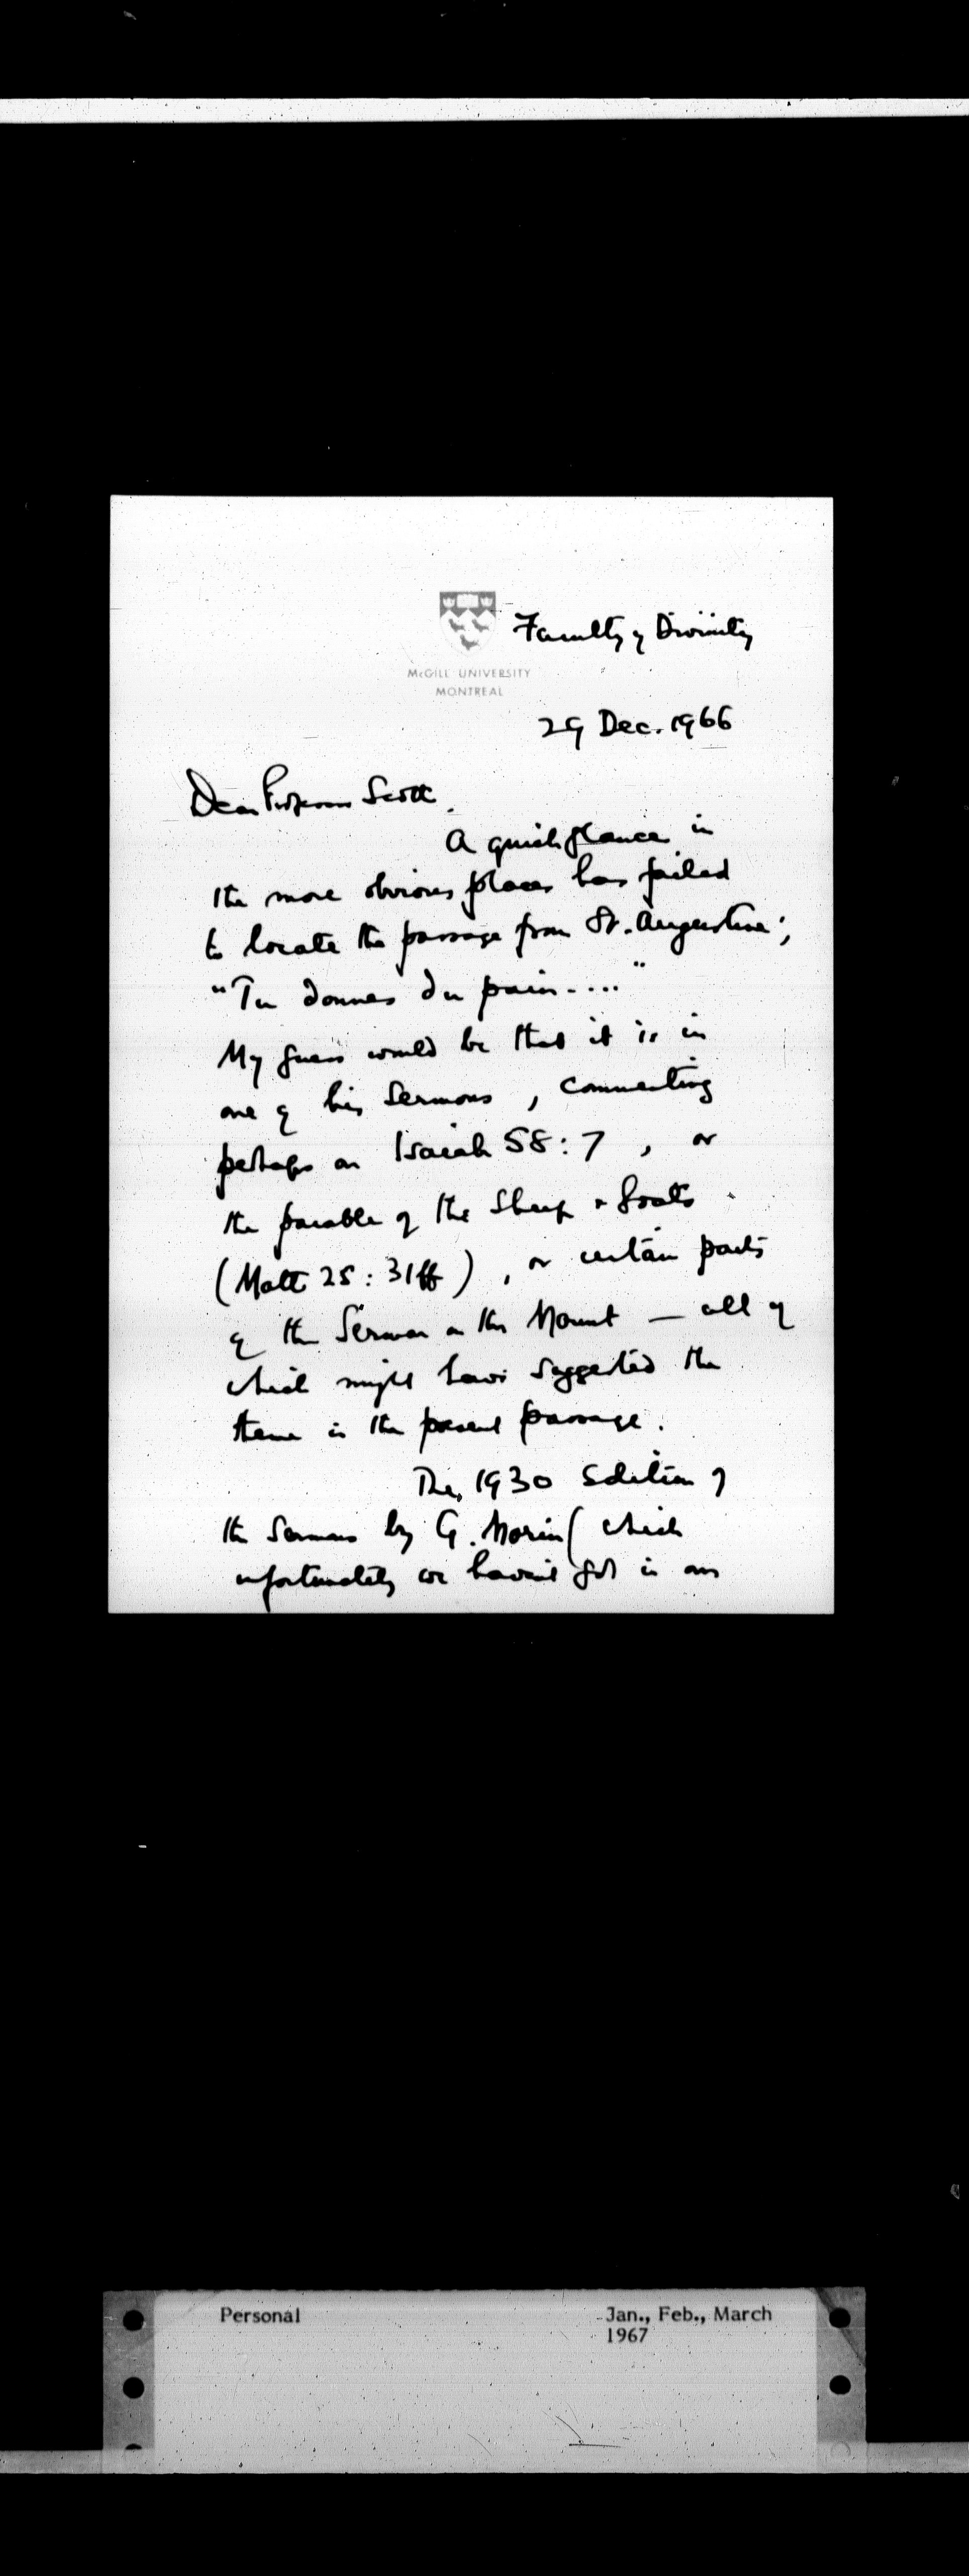 Faculty of Divinity
McGILL UNIVERSITY
MONTREAL
29 Dec. 1966
Dear Professor Scott,
A quick glance in
the more obvious places has failed
to locate the passage from St. Augustine;
"Tu donnes du pain...."
My guess would be that it is in
one of his Sermons, commenting
perhaps on Isaiah 58:7, or
the parable of the Sheep & Goats
(Matt 25:31ff), or certain parts
of the Sermon on the Mount — all of
which might have suggested the
theme in the present passage.
The 1930 Edition of
the Sermons by G. Morin (which
unfortunately we haven't got in our
Personal
Jan., Feb., March
1967